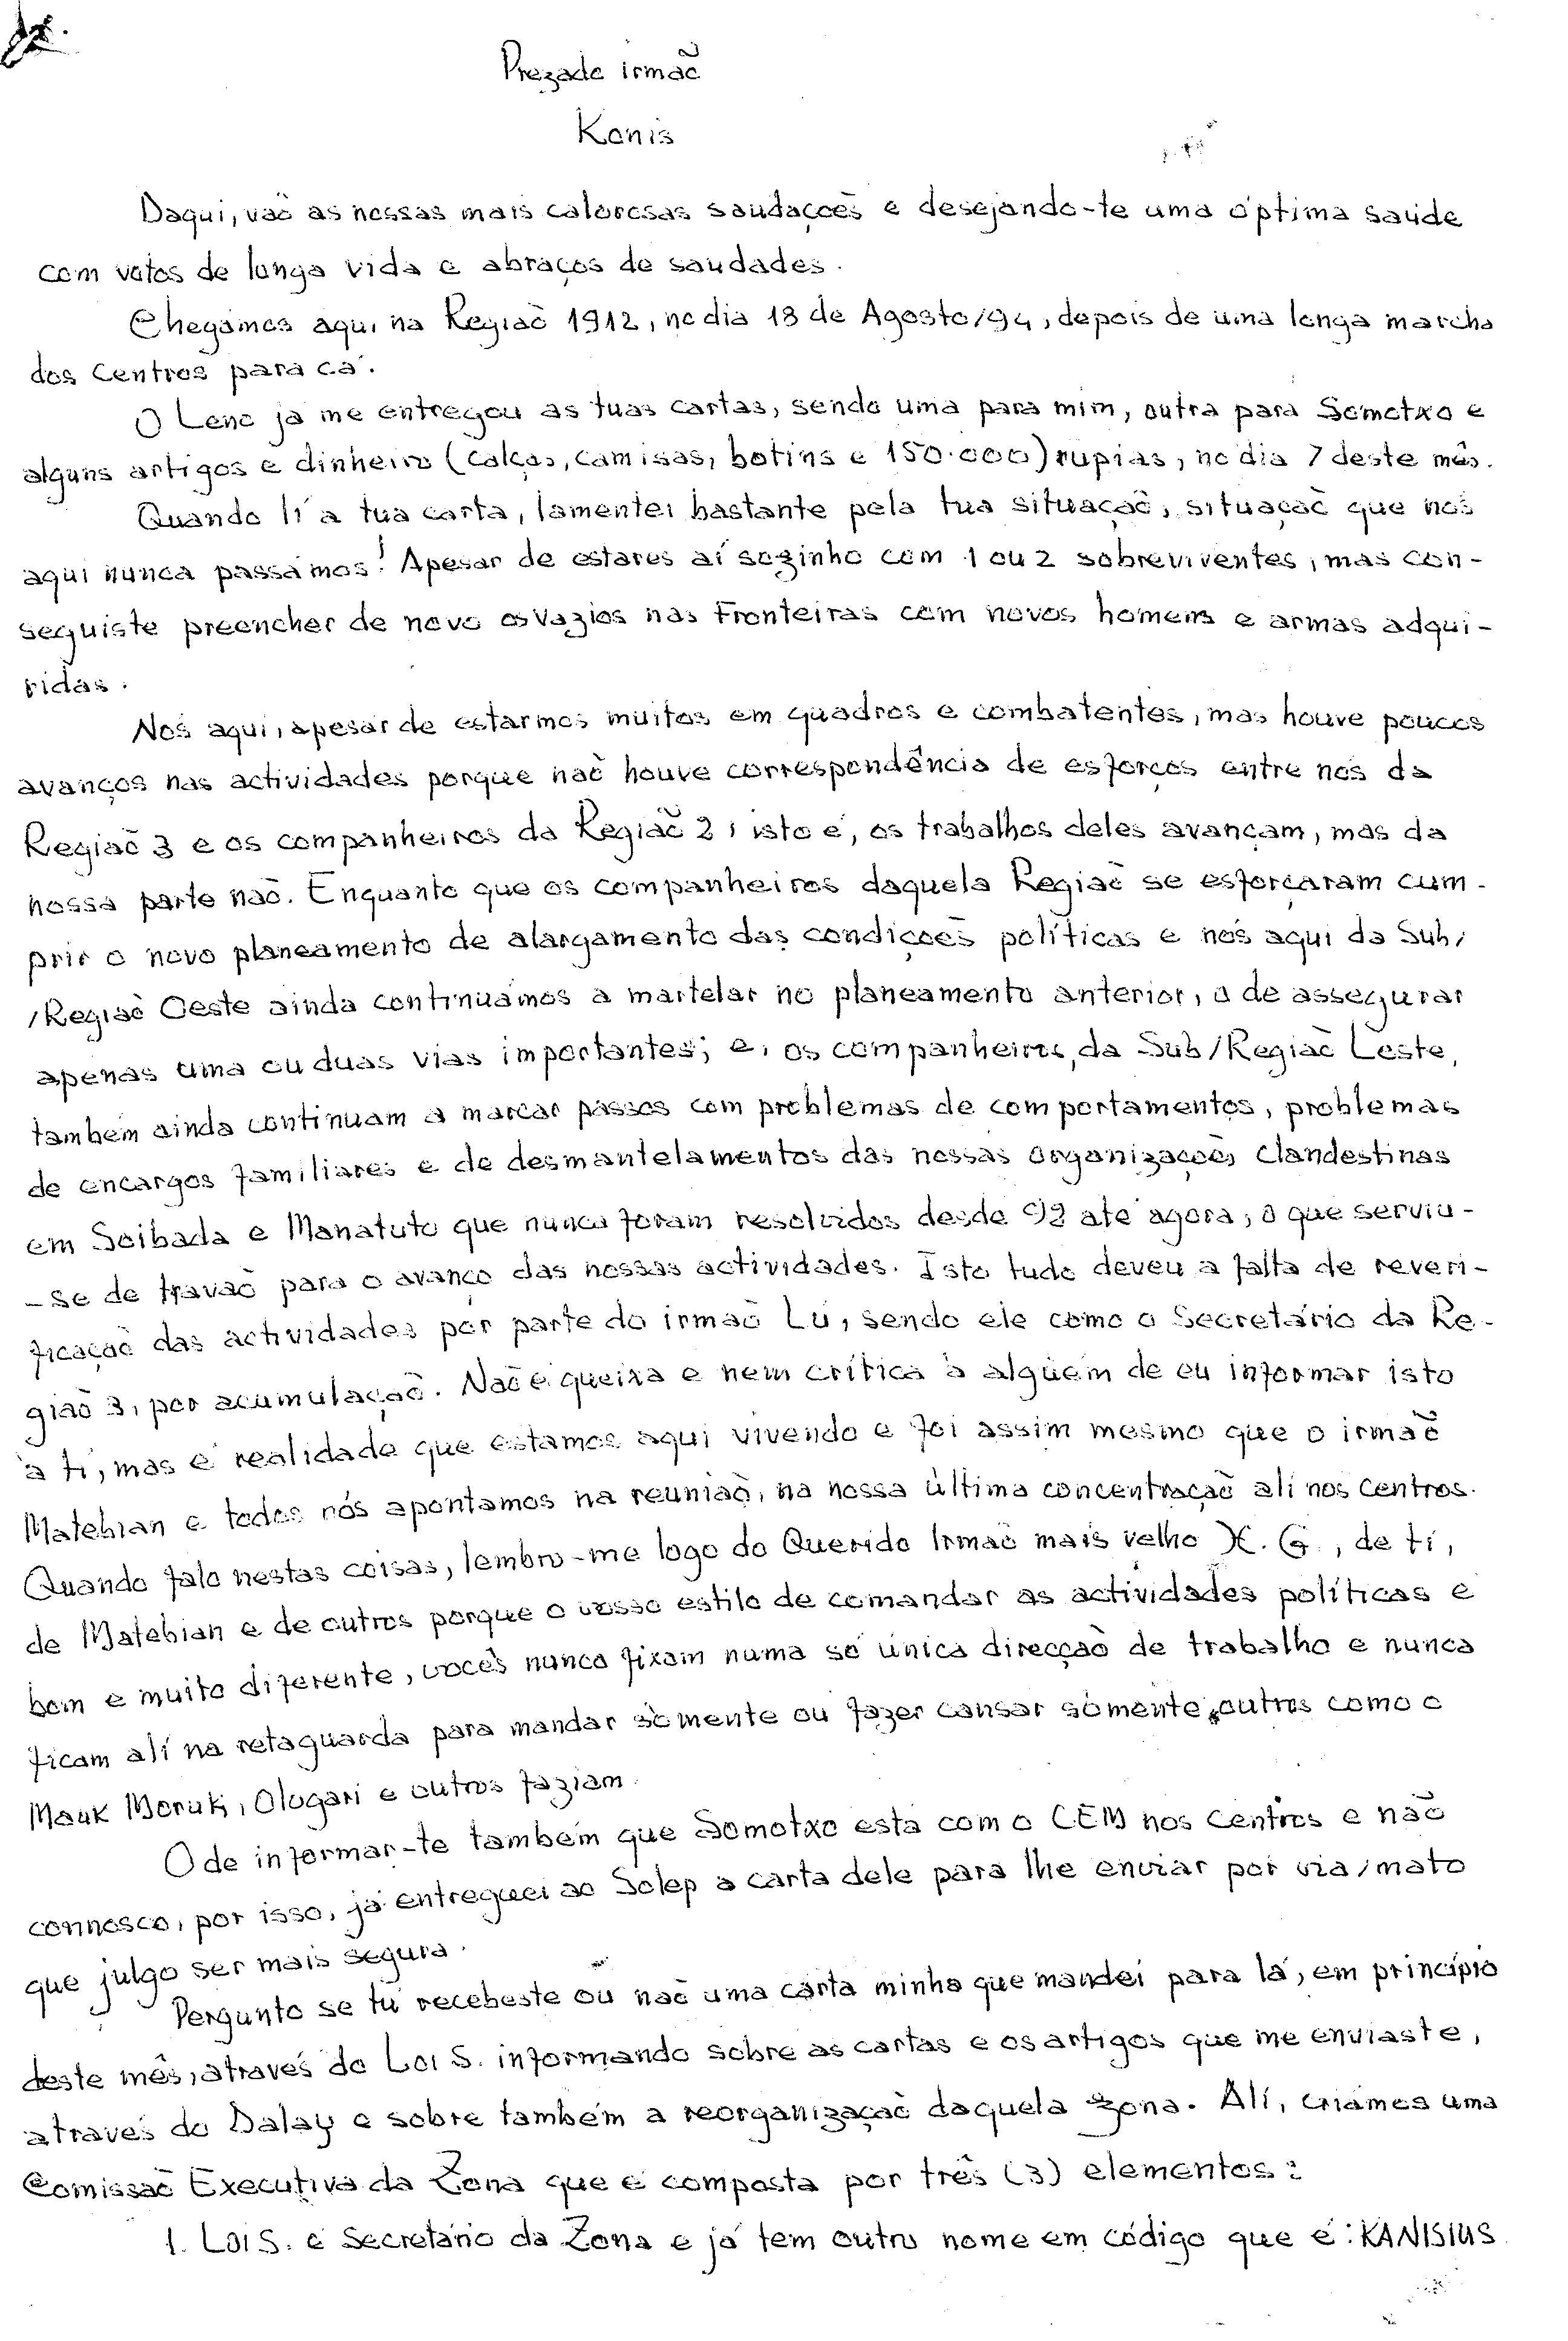 Prezado irmão
Konis
Daqui, vão as nossas mais calorosas saudações e desejando-te uma óptima saúde
com votos de longa vida e abraços de saudades.
Chegámos aqui na Região 1912, no dia 18 de Agosto/94, depois de uma longa marcha
dos Centros para cá.
O Leno já me entregou as tuas cartas, sendo uma para mim, outra para Somotxo e
alguns artigos e dinheiro (calças, camisas, botins e 150.000) rupias, no dia 7 deste mês.
Quando lí a tua carta, lamentei bastante pela tua situação, situação que nós
aqui nunca passámos! Apesar de estares aí sozinho com 1 ou 2 sobreviventes, mas con-
seguiste preencher de novo os vazios nas Fronteiras com novos homens e armas adqui-
ridas.
Nós aqui, apesar de estarmos muitos em quadros e combatentes, mas houve poucos
avanços nas actividades porque não houve correspondência de esforços entre nós da
Região 3 e os companheiros da Região 2, isto é, os trabalhos deles avançam, mas da
nossa parte não. Enquanto que os companheiros daquela Região se esforçaram cum-
prir o novo planeamento de alargamento das condições políticas e nós aqui da Sub/
/Região Oeste ainda continuámos a martelar no planeamento anterior, o de assegurar
apenas uma ou duas vias importantes; e, os companheiros, da Sub/Região Leste,
também ainda continuam a marcar passos com problemas de comportamentos, problemas
de encargos familiares e de desmantelamentos das nossas Organizações Clandestinas
em Soibada e Manatuto que nunca foram resolvidos desde 92 até agora, o que serviu-
-se de travão para o avanço das nossas actividades. Isto tudo deveu a falta de reveri-
ficação das actividades por parte do irmão Lú, sendo ele como o Secretário da Re-
gião 3, por acumulação. Não é queixa e nem crítica à alguém de eu informar isto
à tí, mas é realidade que estamos aqui vivendo e foi assim mesmo que o irmão
Matebian e todos nós apontamos na reunião, na nossa última concentração alí nos Centros.
Quando falo nestas coisas, lembro-me logo do Querido Irmão mais velho X. G., de tí,
de Matebian e de outros porque o vosso estilo de comandar as actividades políticas é
bem e muito diferente, vocês nunca fixam numa só única direcção de trabalho e nunca
ficam alí na retaguarda para mandar sòmente ou fazer cansar sòmente outros como o
Mauk Moruk, Ologari e outros faziam.
O de informar-te também que Somotxo está com o CEM nos Centros e não
connosco, por isso, já entreguei ao Solep a carta dele para lhe enviar por via/mato
que julgo ser mais segura.
Pergunto se tu recebeste ou não uma carta minha que mandei para lá, em princípio
deste mês, através do Loi S. informando sobre as cartas e os artigos que me enviaste,
através do Dalay e sobre também a reorganização daquela zona. Alí, criámos uma
Comissão Executiva da Zona que é composta por três (3) elementos:
1. Loi S. é Secretário da Zona e já tem outro nome em código que é: KANISIUS